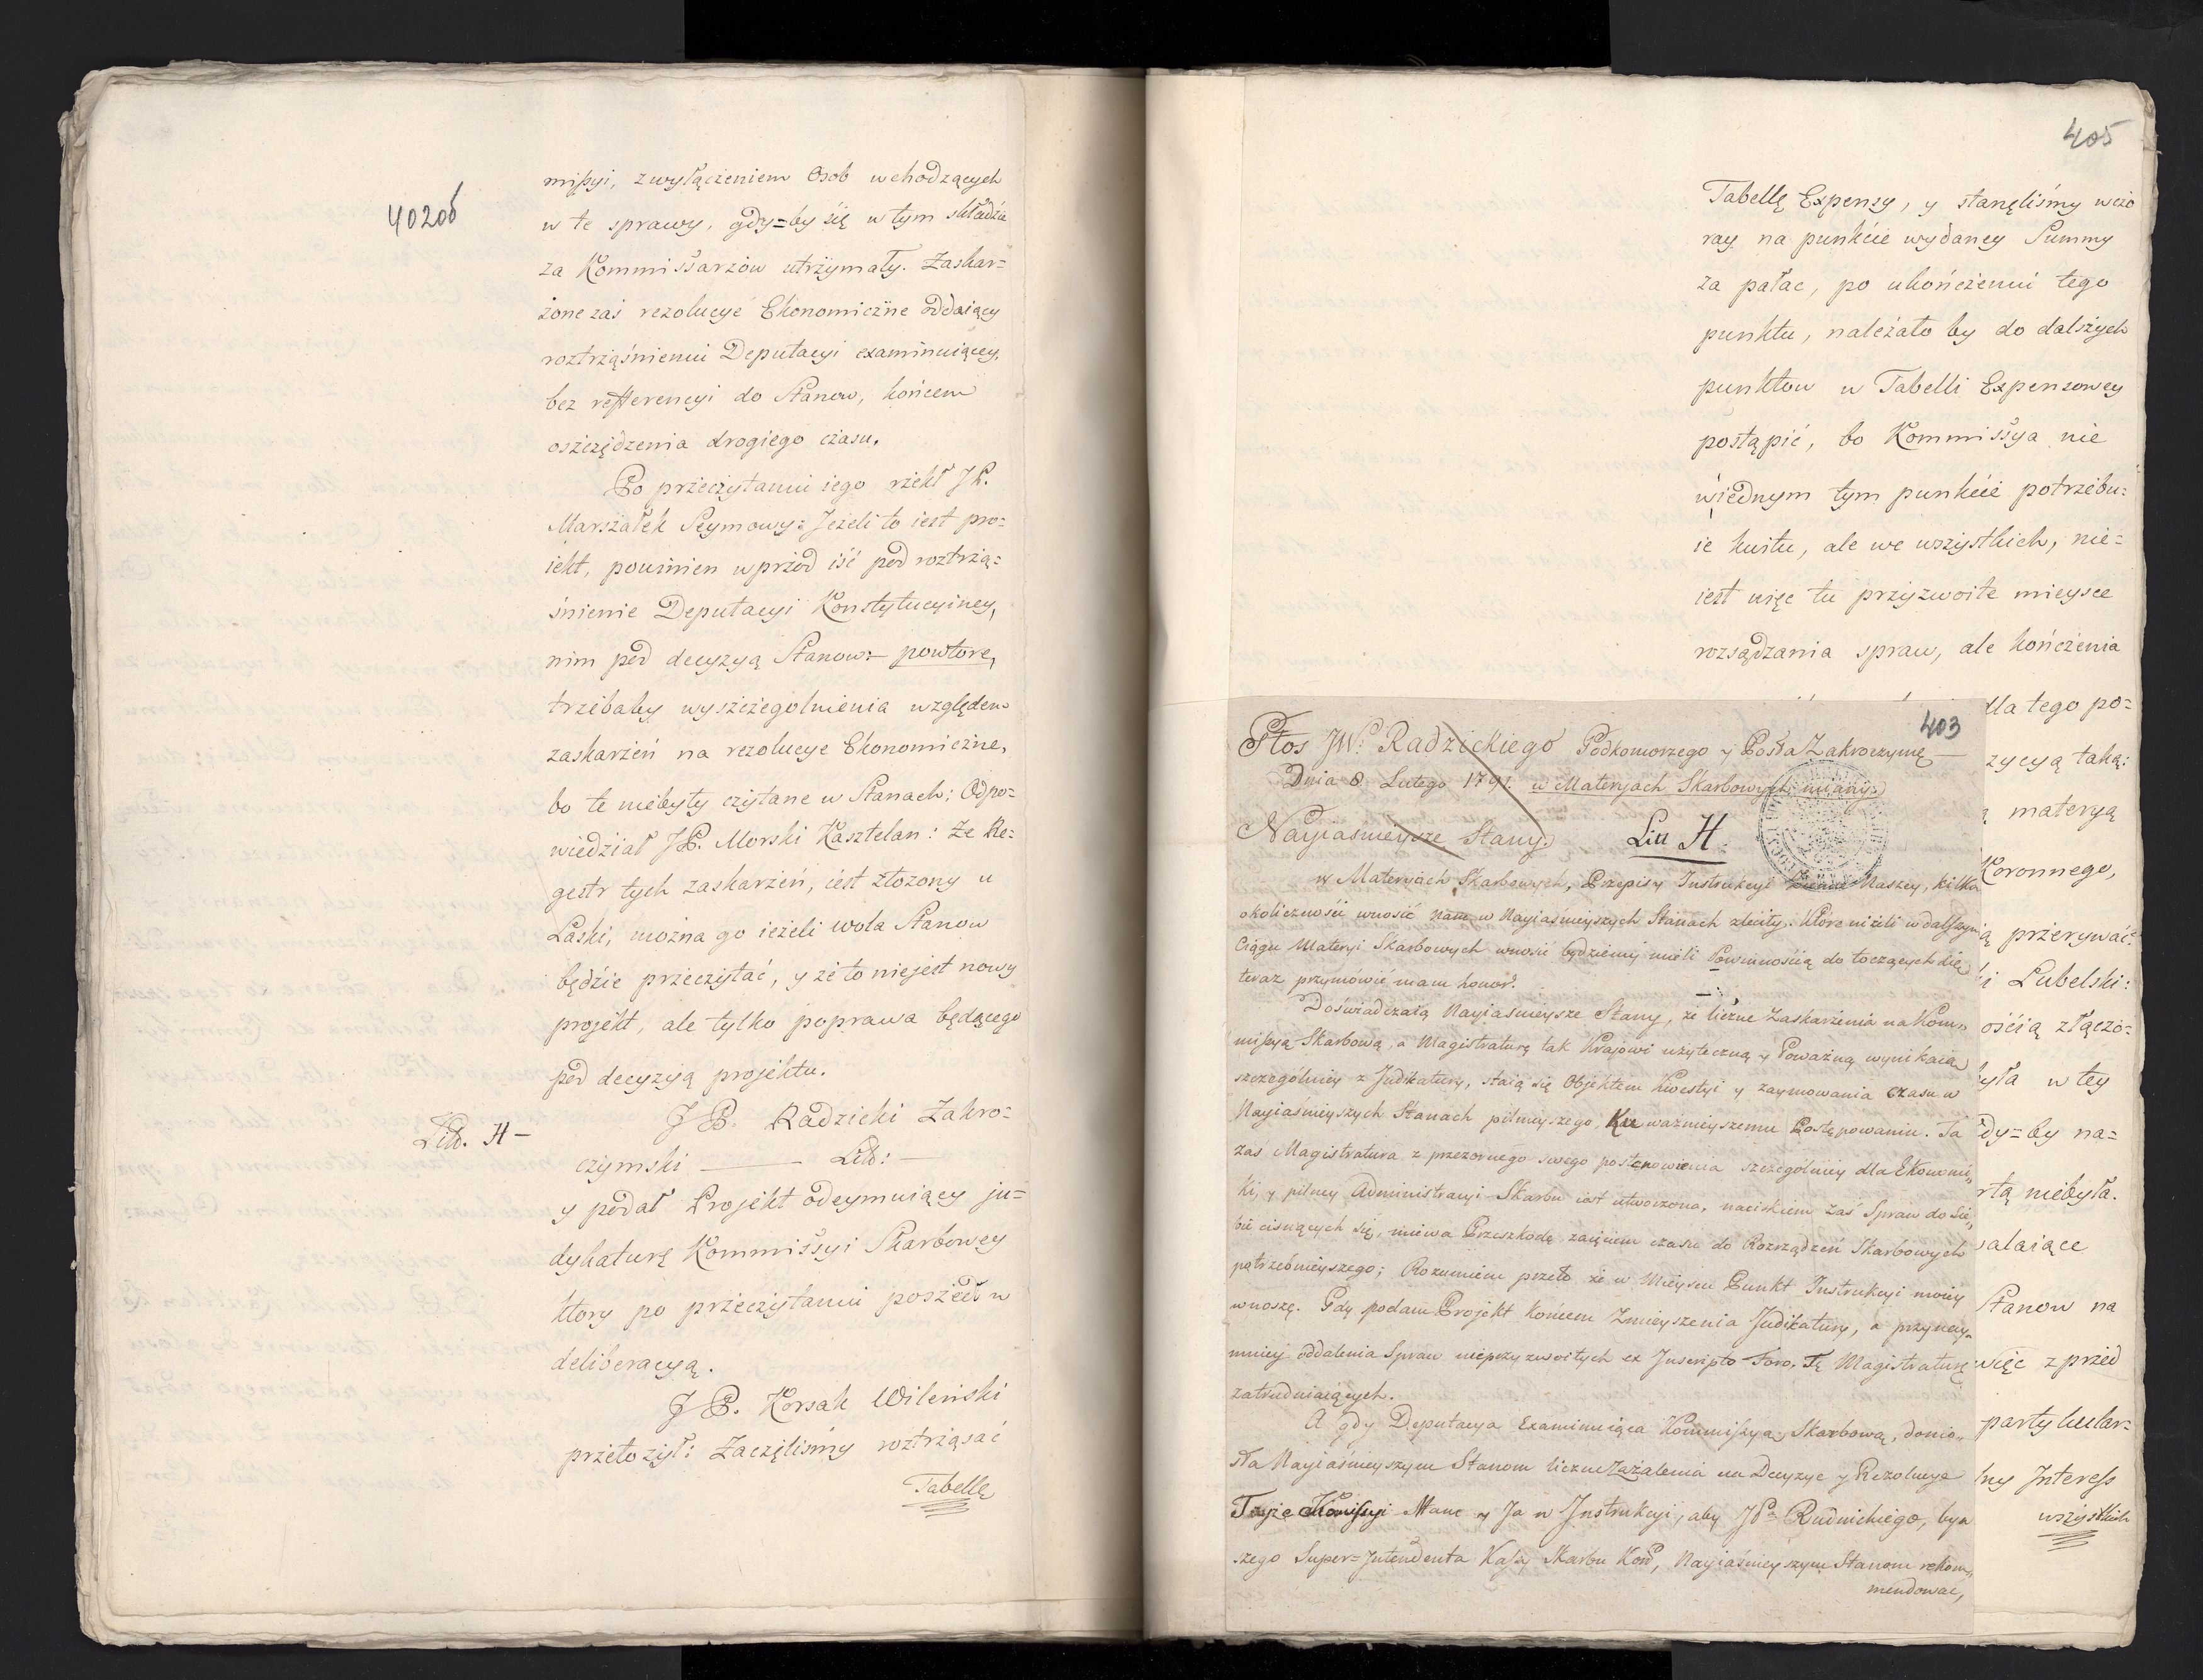 402ob
mißyi, z wyłączeniem Osob wchodzących
w te sprawy, gdy=by się w tym składzie
za Kommissarzow utrzymały. Zaskar=
żone zaś rezolucye Ekonomiczne oddaiący
roztrząśnieniu Deputacyi examinuiącey,
bez refferencyi do Stanow, końcem
oszczędzenia drogiego czasu.
Po przeczytaniu iego rzekł JP.
Marszałek Seymowy: Jeżeli to iest pro=
iekt, powinien w przod iść pod roztrzą=
śnienie Deputacyi Konstytucyiney,
nim pod decyzyą Stanow:– powtore,
trzebaby wyszczegolnienia względem
zaskarżeń na rezolucye Ekonomiczne,
bo te niebyły czytane w Stanach; Odpo=
wiedział JP. Morski Kasztelan: Ze Re=
gestr tych zaskarżeń, iest złozony u
Laski, można go ieżeli wola Stanow
będzie przeczytać, y że to niejest nowy
projekt, ale tylko poprawa będącego
pod decyzyą projektu.
Litt. H –
JP. Radzicki Zakro=
czymski — Litt: —
y podał Projekt odeymuiący ju=
dykaturę Kommissyi Skarbowey
ktory po przeczytaniu poszedł w
deliberacyą.
JP. Korsak Wileński
przełożył: Zaczęlismy roztrząsać
Tabellę
405
Tabellę Expensy, y stanęliśmy wczo
ray na punkcie wydaney Summy
za pałac, po ukończeniu tego
punktu, należało by do dalszych
punktow w Tabelli Expensowey
postąpić, bo Kommissya nie
w iednym tym punkcie potrzebu=
ie kwitu, ale we wszystkich, nie=
iest więc tu przyzwoite mieysce
rozsądzania spraw, ale kończenia
dla tego po=
zycyą taką:
materyą
Koronnego,
przerywać.
Lubelski:
ością złączo=
była w tey
gdy=by na=
niebyła.
Stanow na
więc z przed
partykular=
ny Interess
wszystkich
403
Głos JW. Radzickiego Podkomorzego y Posła Zakroczymę
Dnia 8 Lutego 1791. w Materyach Skarbowych miany.
Nayiasnieysze Stany. Litt H.
w Materyach Skarbowych, Przepisy Instrukcyi Naszey, kilka
okoliczności wnosić nam w Nayiaśnieyszych Stanach zleciły. Które niżeli w dalszym
Ciągu Materyi Skarbowych wnosić będziemy mieli Powinnością do toczących się
teraz przymowić mam honor.
Doświadczaią Nayiasnieysze Stany, że liczne Zaskarżenia na Kom„
mißyą Skarbową, a Magistraturę tak Krajowi użyteczną y Poważną wynikaią
szczególniey z Judikatury, staią się Objektem Kwestyi y zaymowania czasu w
Nayiaśnieyszych Stanach pilnieyszego, Ku ważnieyszemu Postępowaniu. Ta
zaś Magistratura z przezornego swego postanowienia szczególniey dla Ekonomi„
ki, y pilney Administracyi Skarbu iest utworzona, naciskiem zaś Spraw do Sie„
bie cisnących się, miewa Przeszkodę zaięciem czasu do Rozrządzeń Skarbowych
potrzebnieyszego; Rozumiem przeto że w Mieyscu Punkt Instrukcyi moiey
wnoszę. Gdy podam Projekt końcem Zmieyszenia Judikatury, a przynay„
mniey oddalenia Spraw nieprzyzwoitych ex Inscripto Foro, Tę Magistraturę
zatrudniaiących.
A gdy Deputacya Examinuiąca Kommißyą Skarbową, donio„
sła Nayiaśnieyszym Stanom liczne Zażalenia na Decyzye y Rezolucye
Teyże Komißyi Mam y Ja w Instrukcyi, aby JPa Rudnickiego, byw
szego Super=Intendenta Kaßy Skarbu Kor, Nayiaśnieyszym Stanom rekom„
mendować,